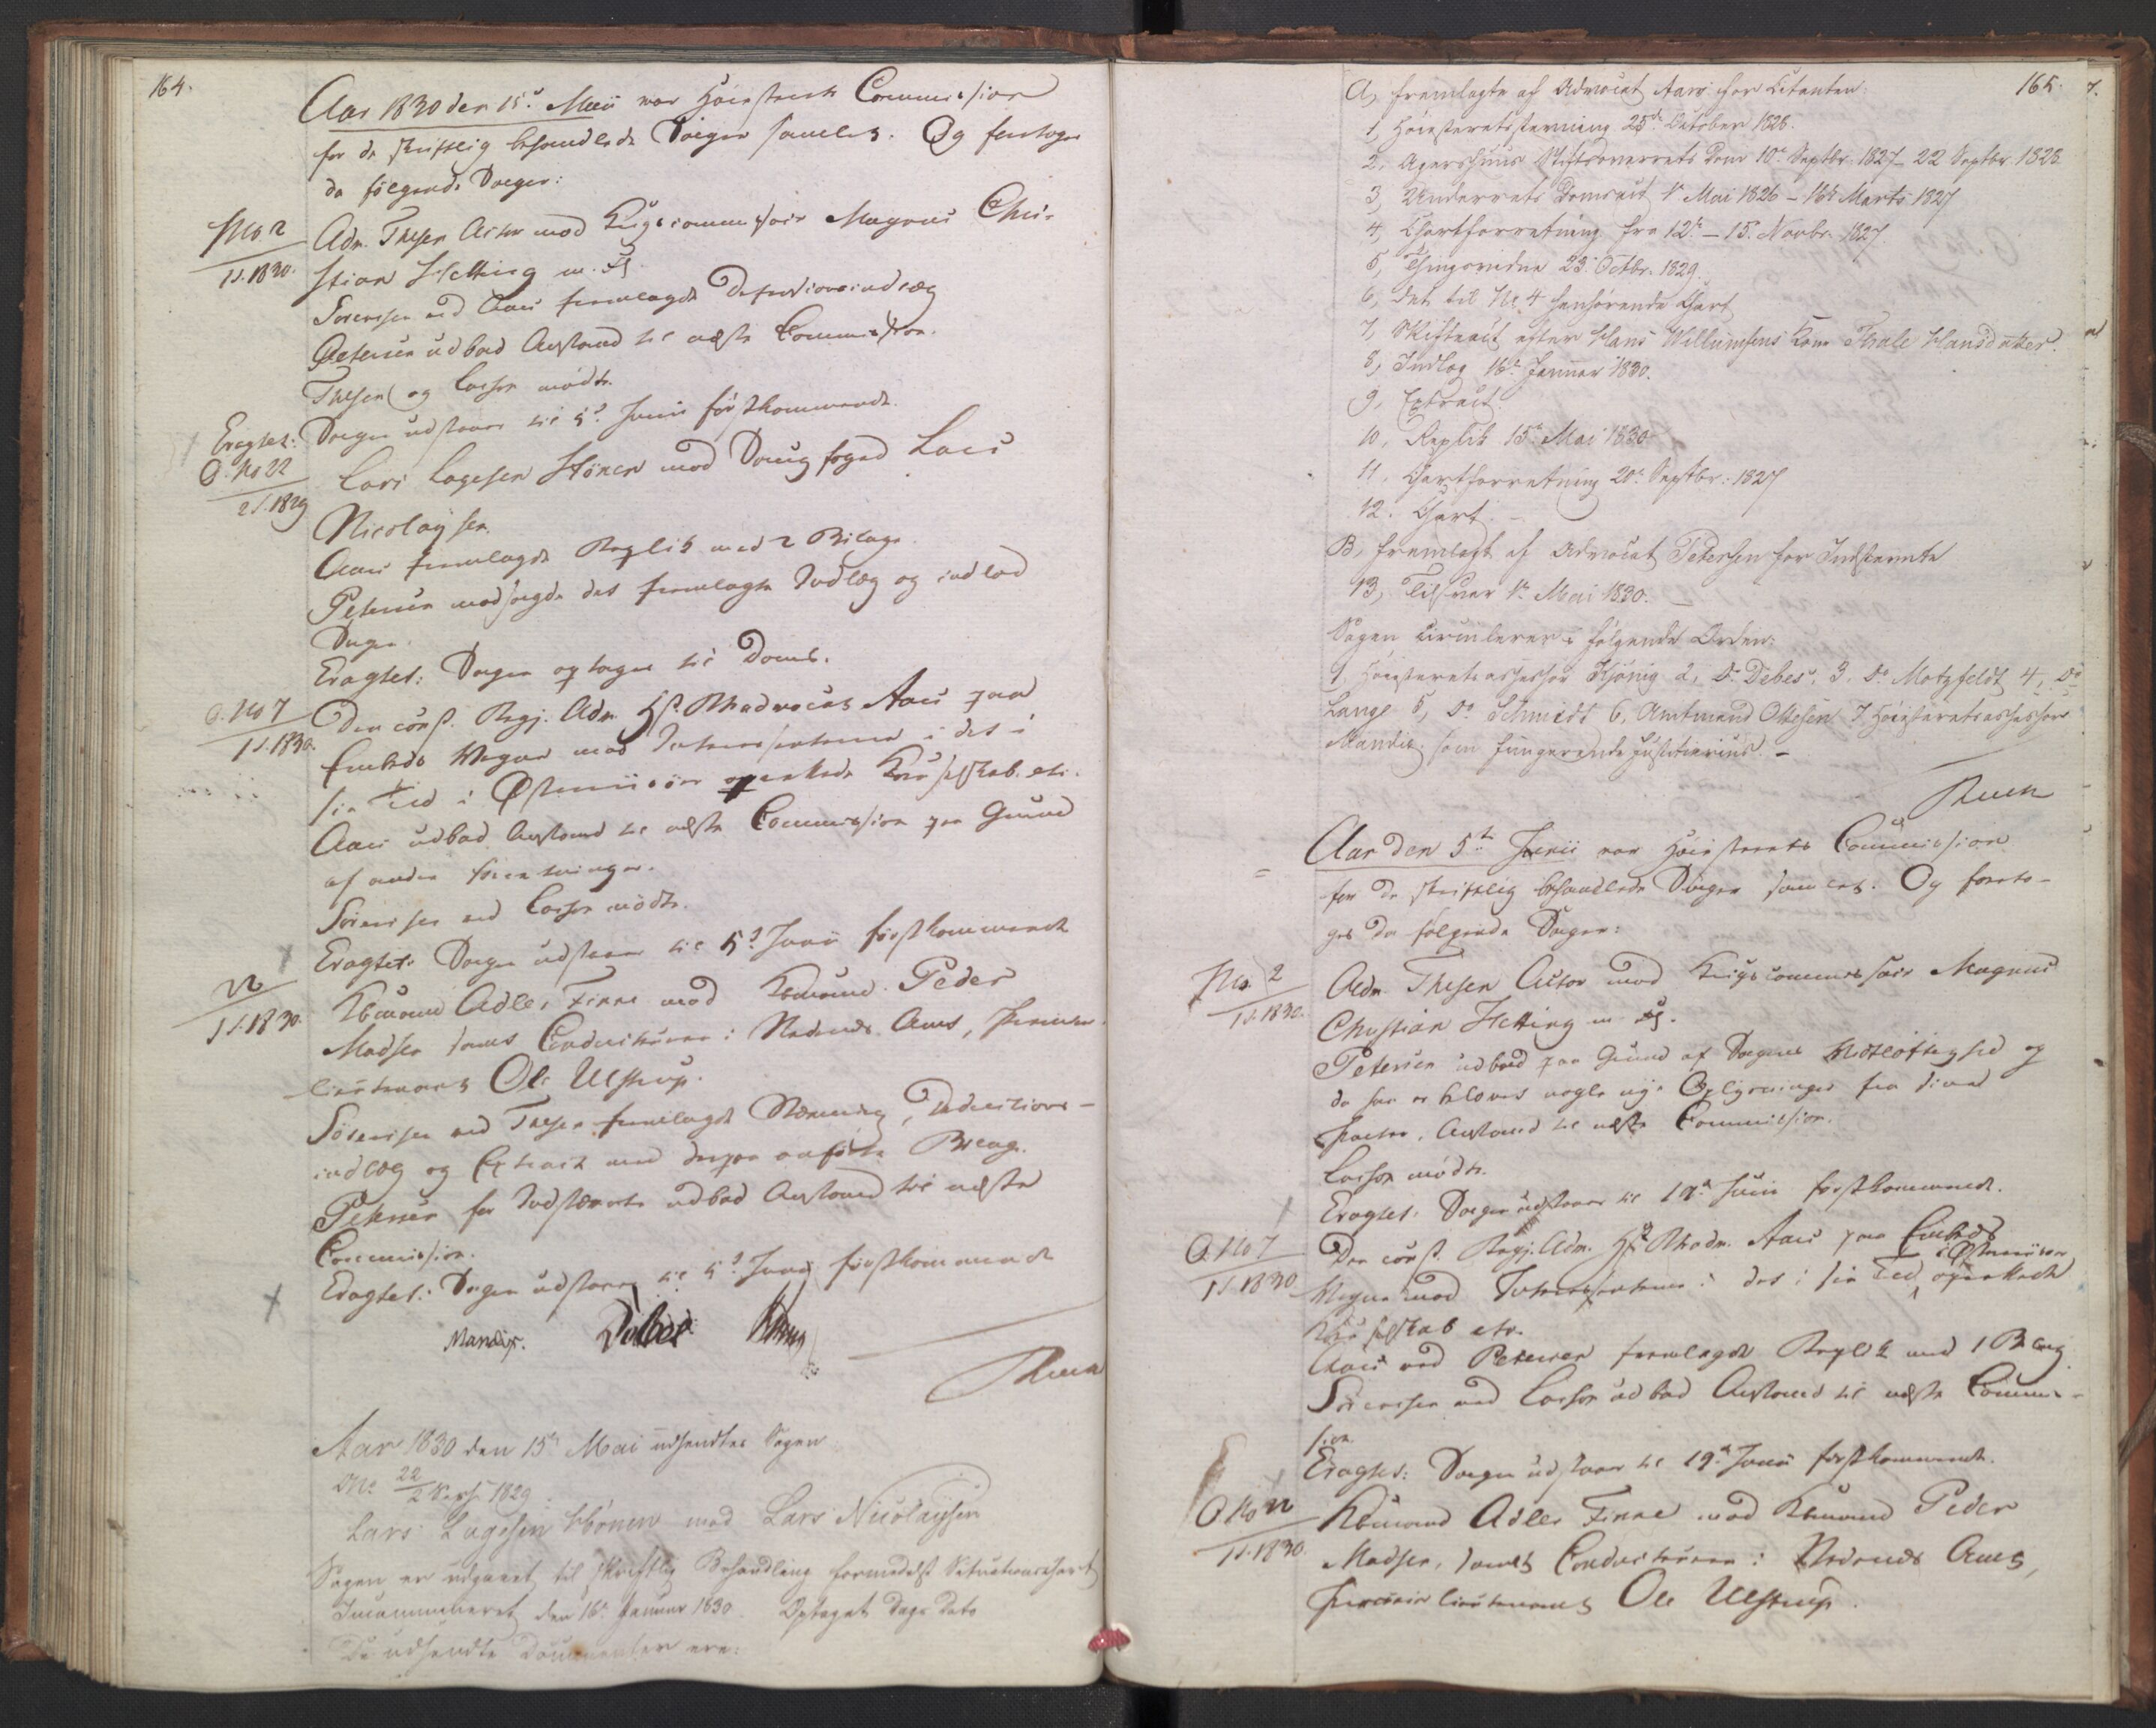 164.
Aar 1830 den 15de Maii var Høiesterets Commission
for de skriftlig behandlede Sager samlet. Og foretoges
da følgende Sager:
No 2
1 S. 1830.
Adv. Thesen Actor mod Krigscommissair Magnus Chri-
stian Hetting m. fl.
Sørensen ved Aars fremlagde Defensionsindlæg
Petersen udbad Anstand til næste Commission.
Thesen og Lasson mødte.
Eragtet: Sagen udstaaer til 5te Junii førstkommende.
O. No 22
2 S. 1829
Lars Lagesen Hönen mod Sougfoged Lars
Nicolaysen.
Aars fremlagde Replik med 2 Bilage.
Petersen modsagde det fremlagte Indlæg og indlod
Sagen.
Eragtet: Sagen optages til Doms.
O. No 7
1 S. 1830.
Den const. Regj. Adv. HstRAdvocat Aars paa
Embeds Vegne mod Interessenterne i det i
sin Tid i Østerriisöer oprettede Kaperselskab etc.
Aars udbad Anstand til næste Commission paa Grund
af andre Forretninger.
Sørensen ved Lasson mødte.
Eragtet: Sagen udstaaer til 5te Junii førstkommende
22
1 S. 1830.
Kbmand Adler Finne mod Kbmand Peder
Madsen samt Conducteuren i Nedenæs Amt, Premier-
lieutenant Ole Ulstrup.
Sørensen ved Thesen fremlagde Stævning, Deductions-
indlæg og Extract med derpaa anførte Bilag.
Petersen for Indstævnte udbad Anstand til næste
Commission.
Eragtet: Sagen udstaaer til 5te Junii førstkommende
Mandix. Debes
Aar 1830 den 15de Mai udsendtes Sagen
No 22/2 Sess. 1829:
Lars Lagesen Hönen mod Lars Nicolaysen
Sagen er udgaaet til skriftlig Behandling formedelst Situationschart
Incammineret den 16de Januar 1830. Optaget Dags Dato
De udsendte Documenter ere:
165.
A, fremlagte af Advocat Aars for Citanten:
1, Høiesteretsstevning 25de October 1828.
2, Agershuus Stiftsoverrets Dom 10de Septbr. 1827 - 22 Septbr. 1828
3, Underrets Domsact 1 Mai 1826 - 16de Marts 1827
4, Chartforretning fra 12te - 15. Novbr. 1827
5, Thingsvidne 23. Octbr. 1829.
6, Det til No. 4 henhørende Chart
7, Skifteact efter Hans Willumsens Kone Thale Hansdatter.
8, Indlæg 16de Januar 1830.
9, Extract.
10, Replik 15de Mai 1830
11, Chartforretning 20de Septbr. 1827
12. Chart. -
B, fremlagt af Advocat Petersen for Indstevnte
13, Tilsvar 1te Mai 1830. -
Sagen circulerer i følgende Orden:
1, Høiesteretsassessor Kjönig 2, Do Debes, 3. Do Motzfeldt 4, Do
Lange 5, Do Schmidt 6, Amtmand Ottesen 7 Høiesteretsassessor
Mandix som fungerende Justitiarius. -
Aar den 5te Junii var Høiesterets Commission
for de skriftlig behandlede Sager samlet. Og foreto-
ges da følgende Sager:
No. 2
1 S. 1830.
Adv. Thesen Actor mod Krigscommissair Magnus
Christian Hetting m. fl.
Petersen udbad paa Grund af Sagens Vidtløftighed og
da han nogle nye Oplysninger fra sine
Parter, Anstand til næste Commission.
Lasson mødte.
Eragtet: Sagen udstaaer til 19de Junii førstkommende.
O. No 7
1 S. 1830
Den const. Regj. Adv. HstRAdv. Aars paa Embeds
Vegne mod Interessenterne i det i sin Tid i Østerriisøer oprettede
Kaperselskab etc.
Aars ved Petersen fremlagde Replik med 1 Bilag
Sørensen ved Lasson udbad Anstand til næste Commis-
sion.
Eragtet: Sagen udstaaer til 19de Junii førstkommende.
O. No 22
1 S. 1830.
Kbmand Adler Finne mod Kbmand Peder
Madsen, samt Conducteuren i Nedenæs Amt,
Premierlieutenant Ole Ulstrup.